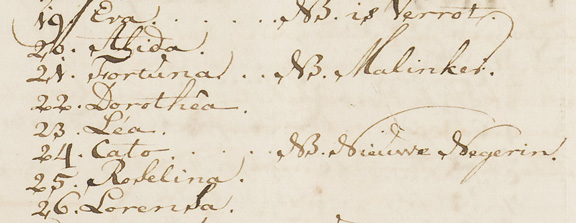 19. Eva. . . . . . . NB. is Verrot.
20. Asida.
21. Fortúna. . . NB. Malinker.
22. Dorothéa.
23. Léa.
24. Cato. . . . . . NB. Nieuwe Negerin.
25. Roselina.
26. Lorensa.